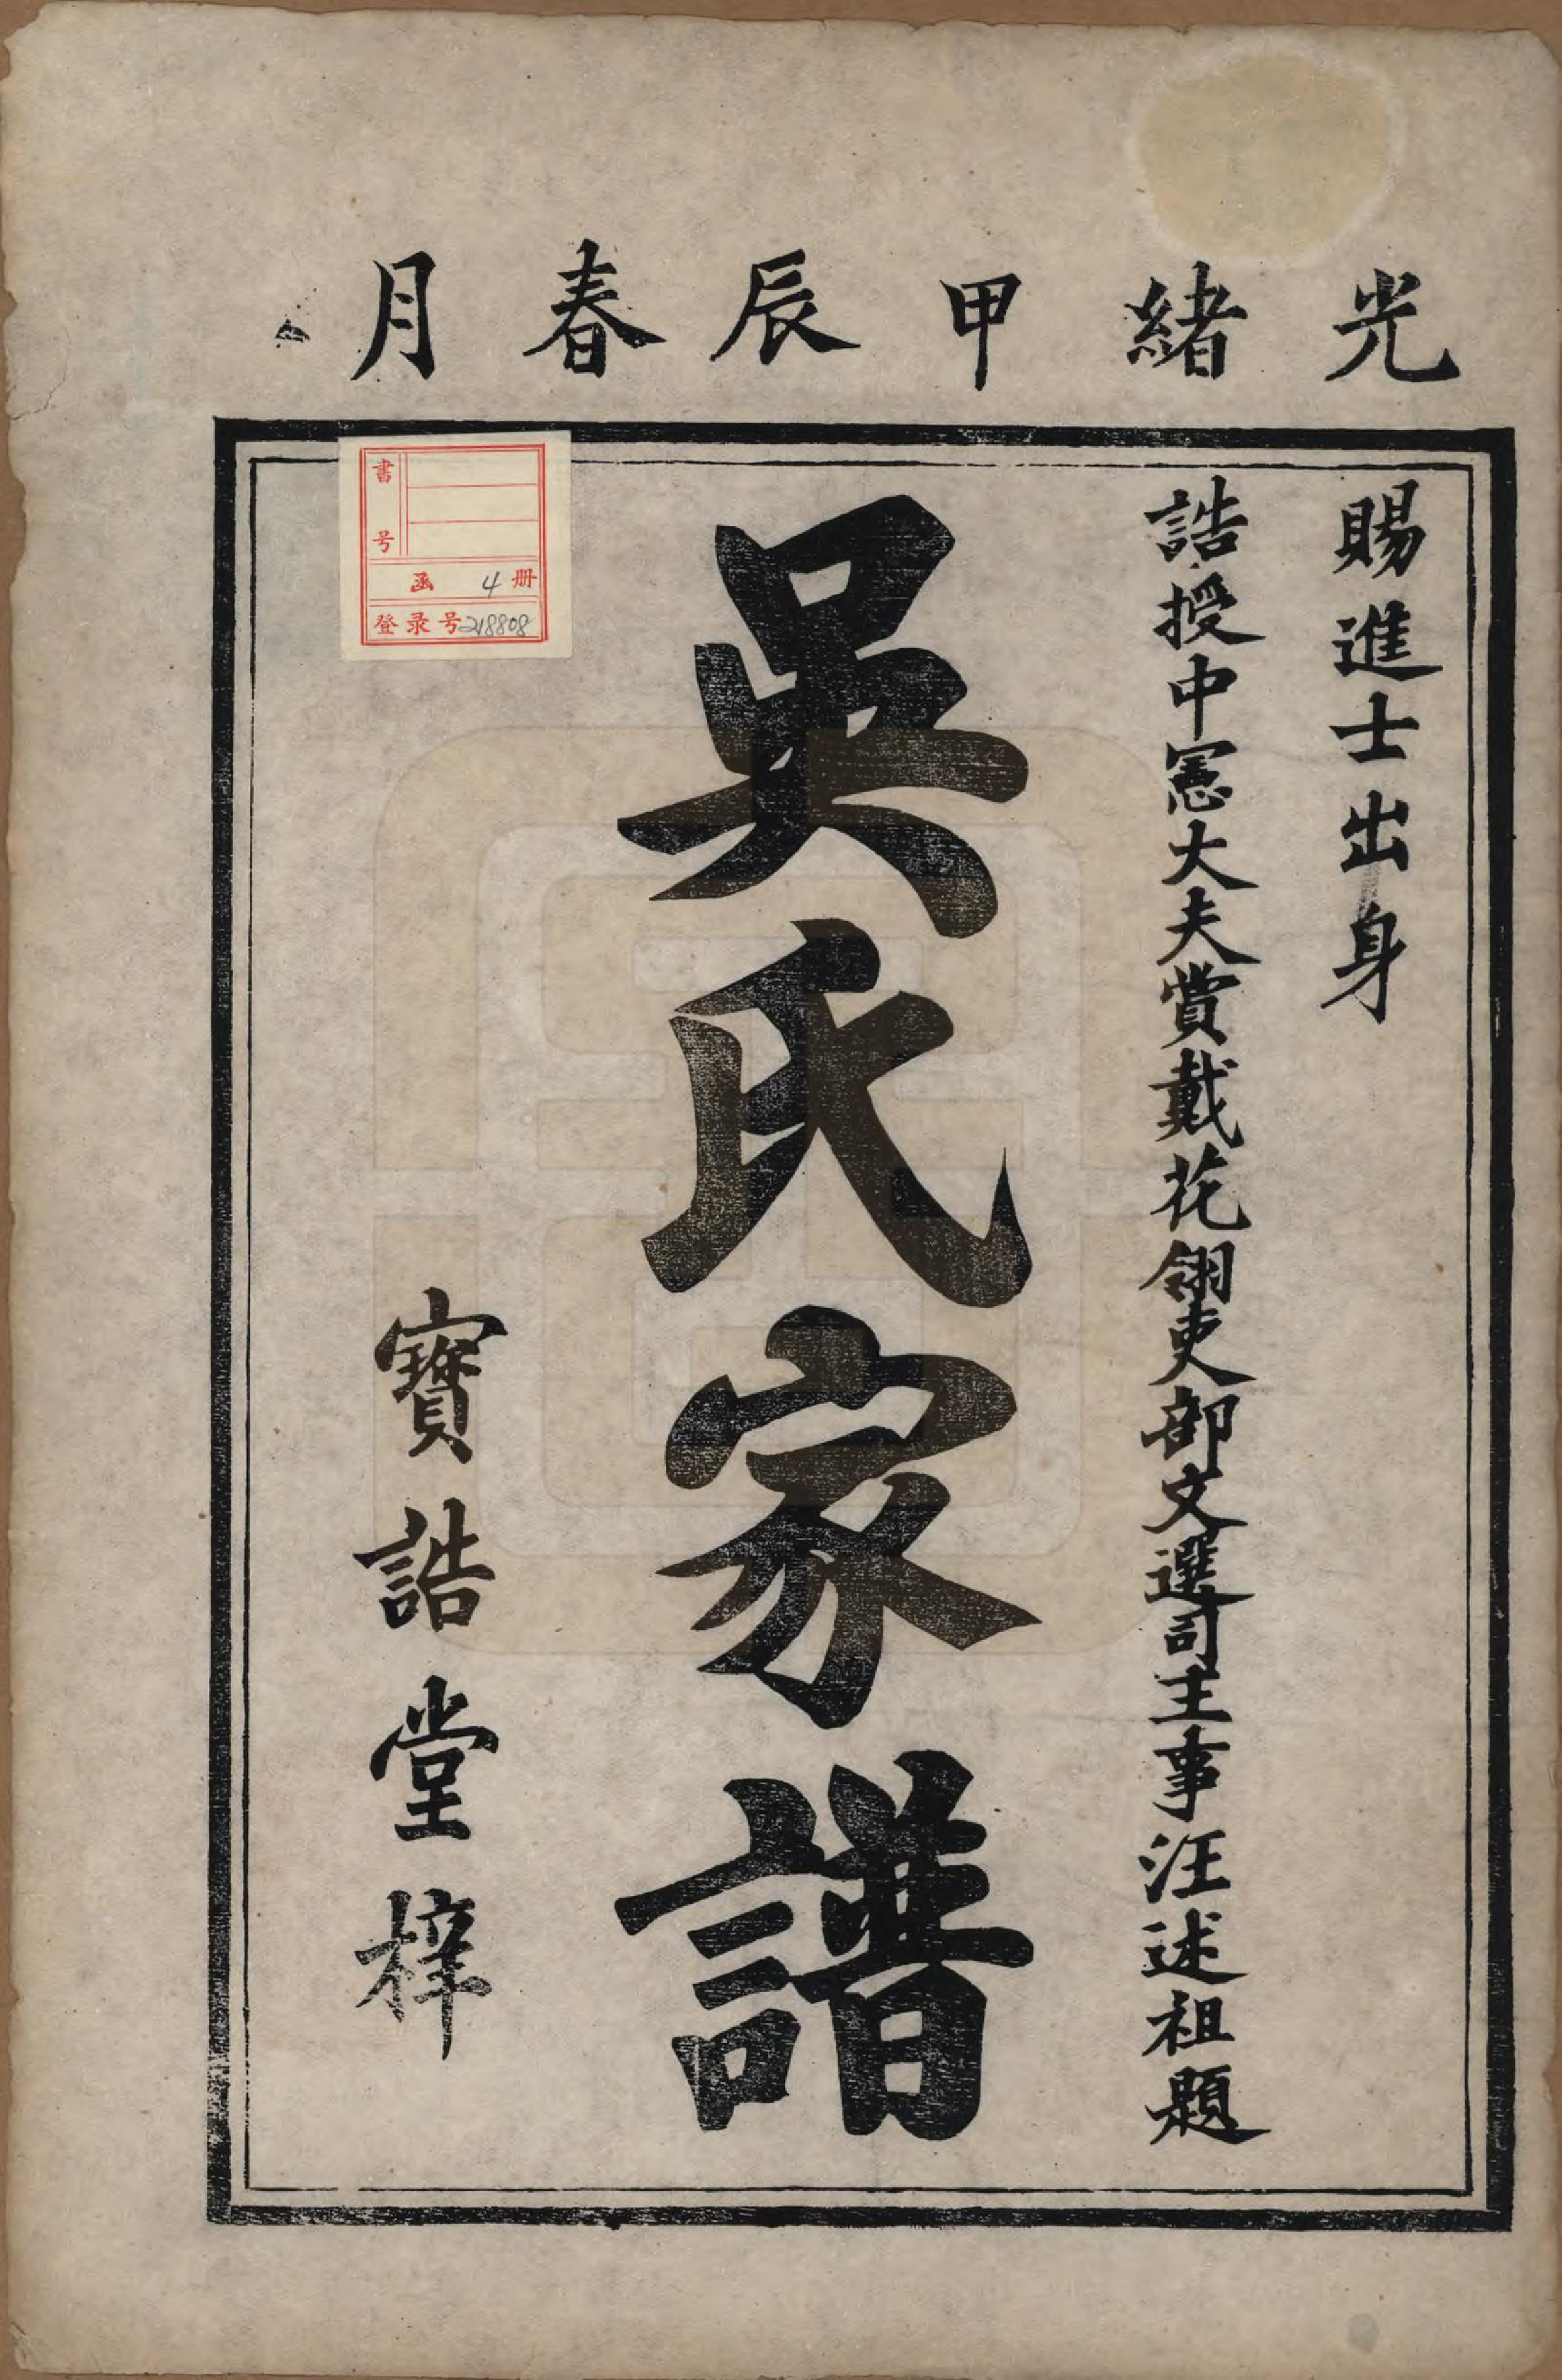 光緒甲辰春月
賜進士出身
誥授中憲大夫賞戴花翎吏部文選司主事汪述祖題
吳氏家譜
寶誥堂梓
書号
函 4 册
登录号218808